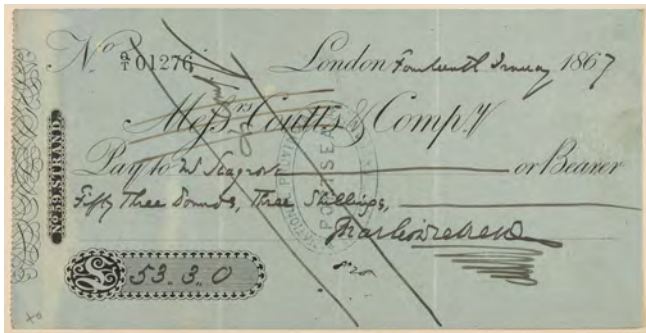 No a/T 01276 London Fourteenth January 1867
Messrs Coutts & Compy
Pay to W Seagrove or Bearer
Fifty Three Pounds, Three Shillings,
Charles Dickens
£ 53.3.0
No 59, STRAND.
NATIONAL PROVINCIAL
PORTSEA